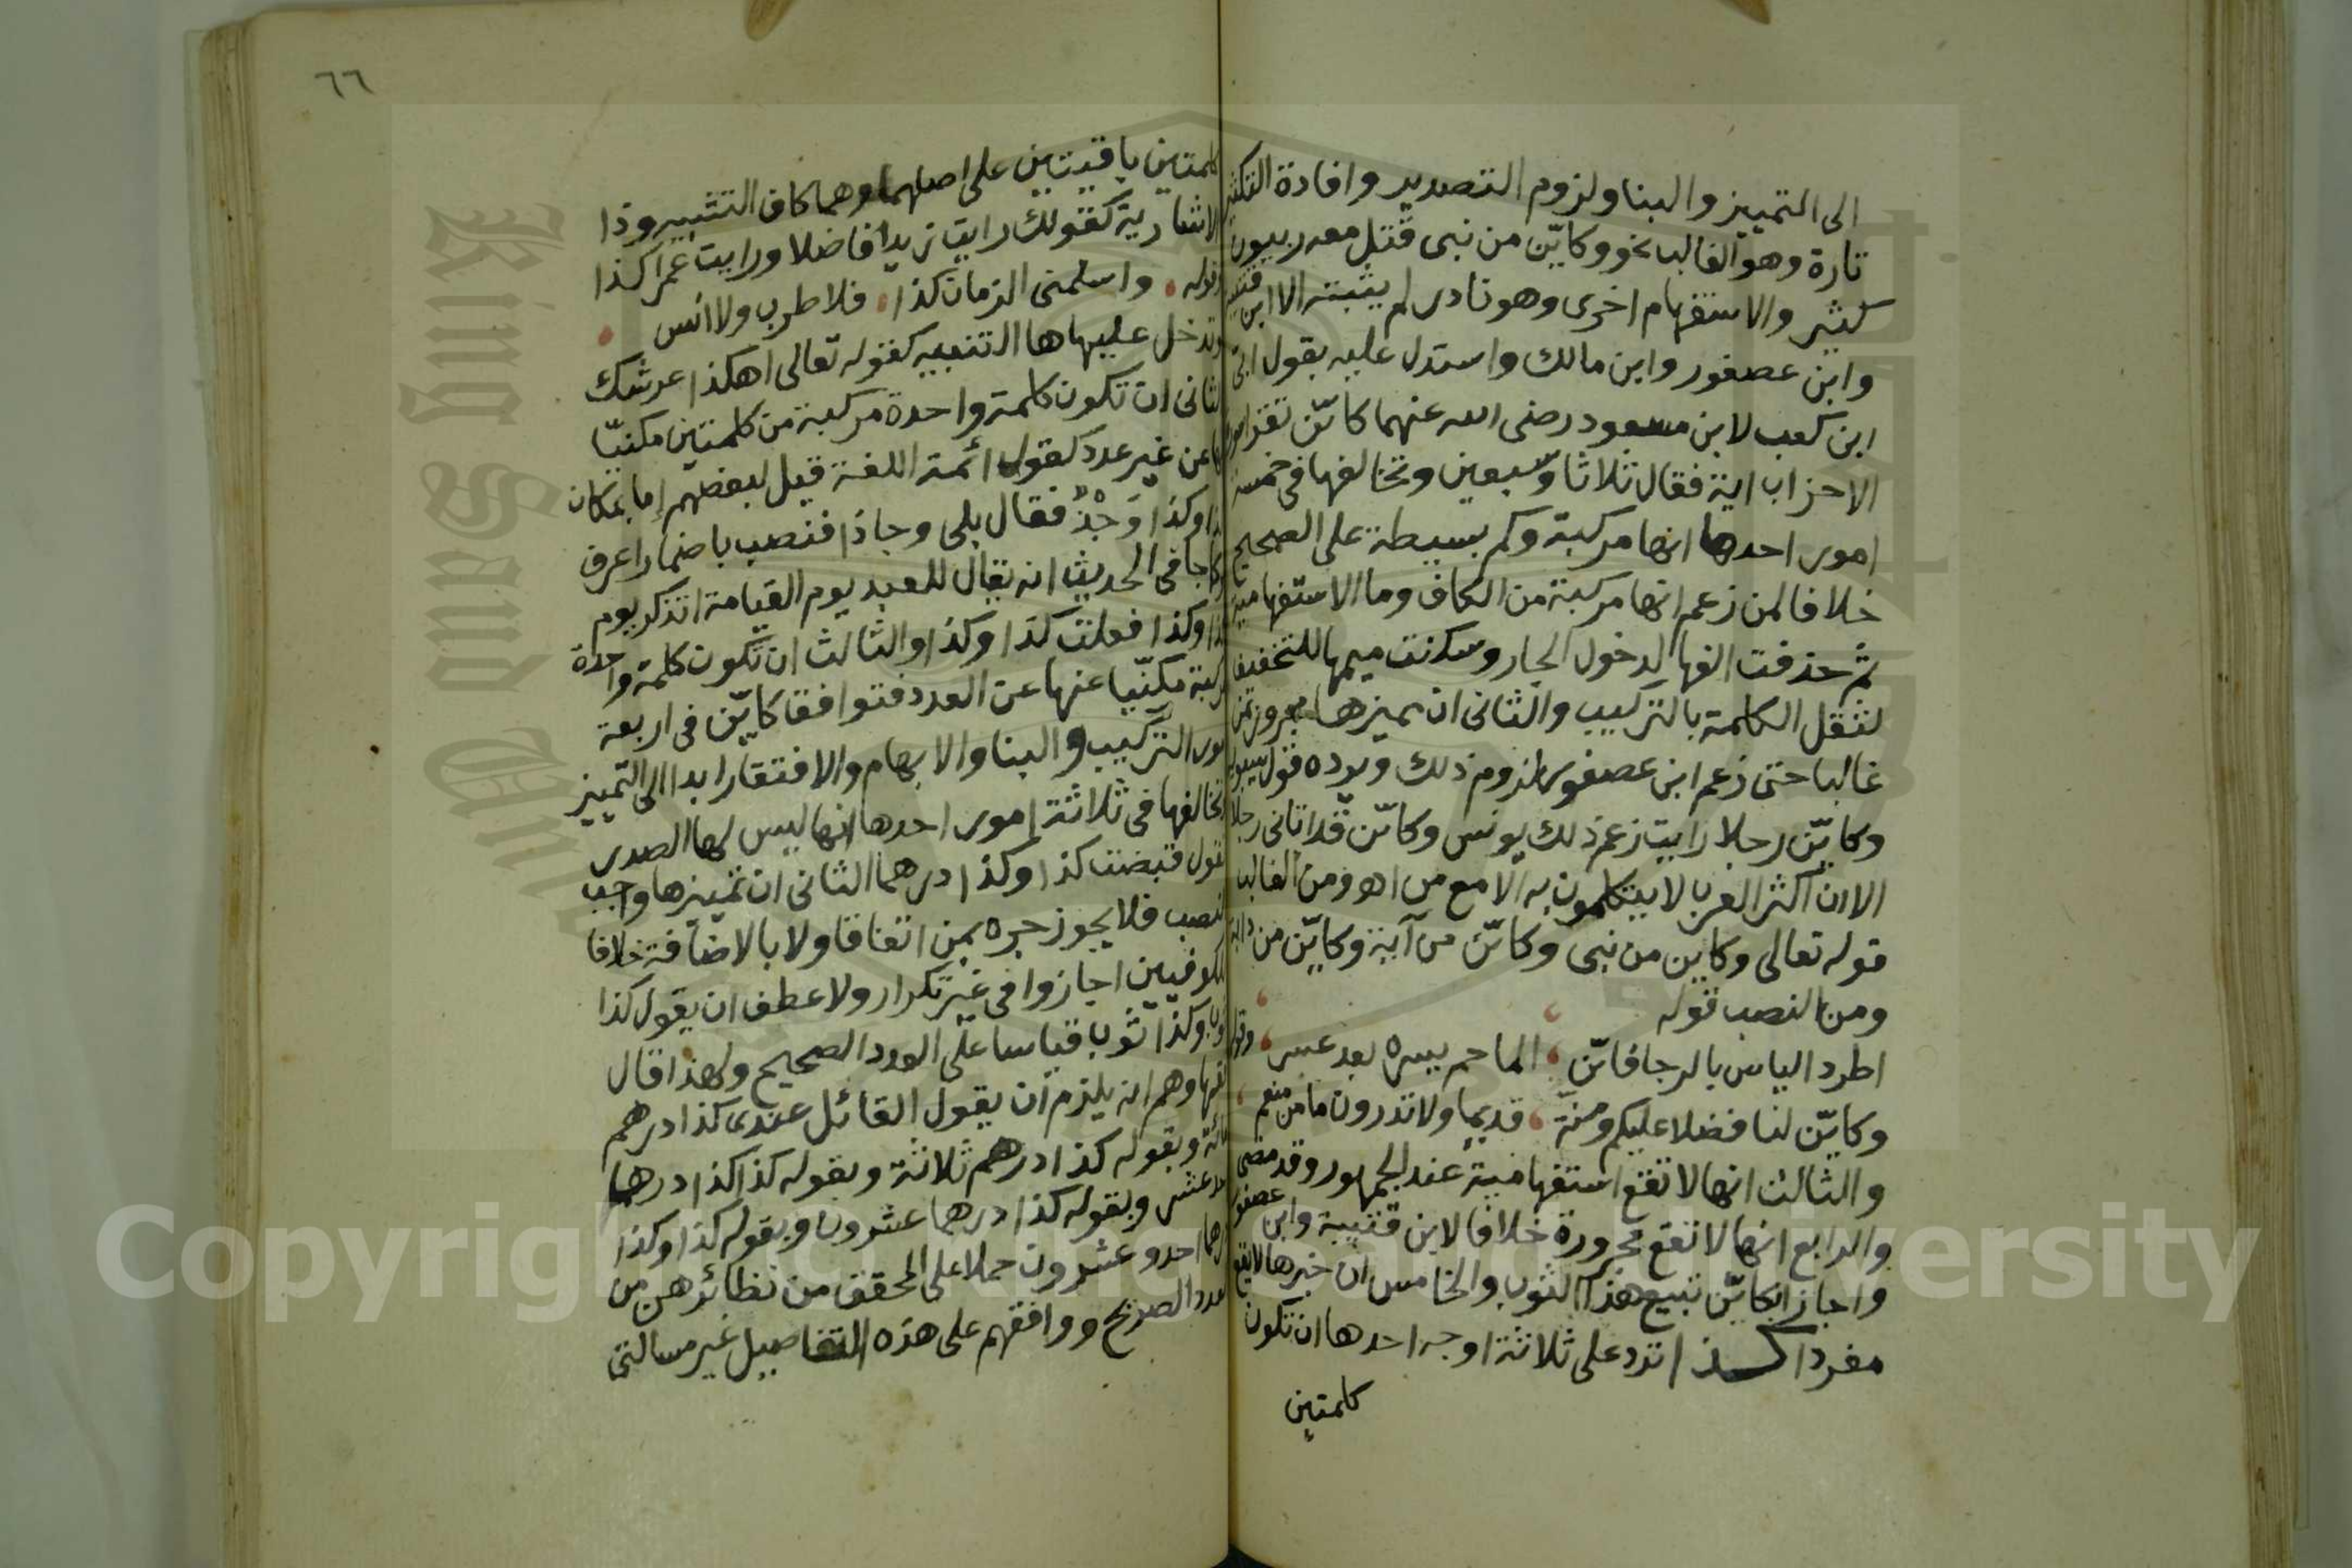 الى التمييز والبنا ولزوم التصدير وافادة التكثير
تارة وهو الغالب نحو وكايّن من نبى قتل معه ربيون
كثير والاستفهام اخرى وهو نادر لم يثبته الا ابن قتيبة
وابن عصفور وابن مالك واستدل عليه بقول ابىّ
ابن كعب لابن مسعود رضى الله عنهما كايّن تقرا سورة
الاحزاب اية فقال ثلاثا وسبعين وتخالفها فى خمسة
امور احدها انها مركبة وكم بسيطة على الصحيح
خلافا لمن زعم انها مركبة من الكاف وما الاستفهامية
ثم حذفت الفها لدخول الجار وسكنت ميمها للتخفيف
لثقل الكلمة بالتركيب والثانى ان مميزها مجرور بمن
غالبا حتى زعم ابن عصفور لزوم ذلك ويرده قول سيبويه
وكايّن رجلا رايت زعم ذلك يونس وكايّن قد اتانى رجلا
الا ان اكثر العرب لا يتكلمون به الا مع من اهو ومن الغالب
قوله تعالى وكاين من نبى وكايّن من آية وكايّن من دابة
ومن النصب قوله
اطرد الياس بالرجا فايّن الما حم يسره بعد عسر وقوله
وكايّن لنا فضلا عليكم ومنة قديما ولا تدرون ما من منعم
والثالث انها لا تقع استفهامية عند الجمهور وقد مضى
والرابع انها لا تقع مجرورة خلافا لابن قتيبة وابن عصفور
واجاز ابكايّن تبيع هذا الثوب والخامس ان خبرها لا يقع
مفردا كذا ترد على ثلاثة اوجه احدها ان تكون
كلمتين
٦٦
كلمتين باقيتين على اصلهما وهما كاف التشبيه وذا
الاشارية كقولك رايت زيدا فاضلا ورايت عمرا كذا
وقوله واسلمنى الزمان كذا فلا طرب ولا انس
وتدخل عليها ها التنبيه كقوله تعالى اهكذا عرشك
الثانى ان تكون كلمة واحدة مركبة من كلمتين مكنيّا
بها عن غير عدد كقول ائمة اللغة قيل لبعضهم اما بمكان
كذا وكذا وَجْذٌ فقال بلى وجاذا فنصب باضمار اعرف
وكما جا فى الحديث انه يقال للعبد يوم القيامة اتذكر يوم
كذا وكذا فعلت كذا وكذا والثالث ان تكون كلمة واحدة
مركبة مكنّيا عنها عن العدد فتوافق كايّن فى اربعة
امور التركيب والبنا والابهام والافتقار ابدا الى التمييز
وتخالفها فى ثلاثة امور احدها انها ليس لها الصدر
تقول قبضت كذا وكذا درهما الثانى ان تمييزها واجب
النصب فلا يجوز جره بمن اتفاقا ولا بالاضافة خلافا
للكوفيين اجازوا فى غير تكرار ولا عطف ان يقول كذا
ثوب وكذا ثوب قياسا على العدد الصحيح ولهذا قال
فقهاوهم انه يلزم ان يقول القائل عندى كذا درهم
مائة وبقوله كذا درهم ثلاثة وبقوله كذا كذا درهما
احد عشر وبقوله كذا درهما عشرون وبقوله كذا وكذا
درهما احد وعشرون حملا على المحقق من نظائرهن من
العدد الصريح ووافقهم على هذه التفاصيل غير مسالتى
King Saud University
Copyright © King Saud University